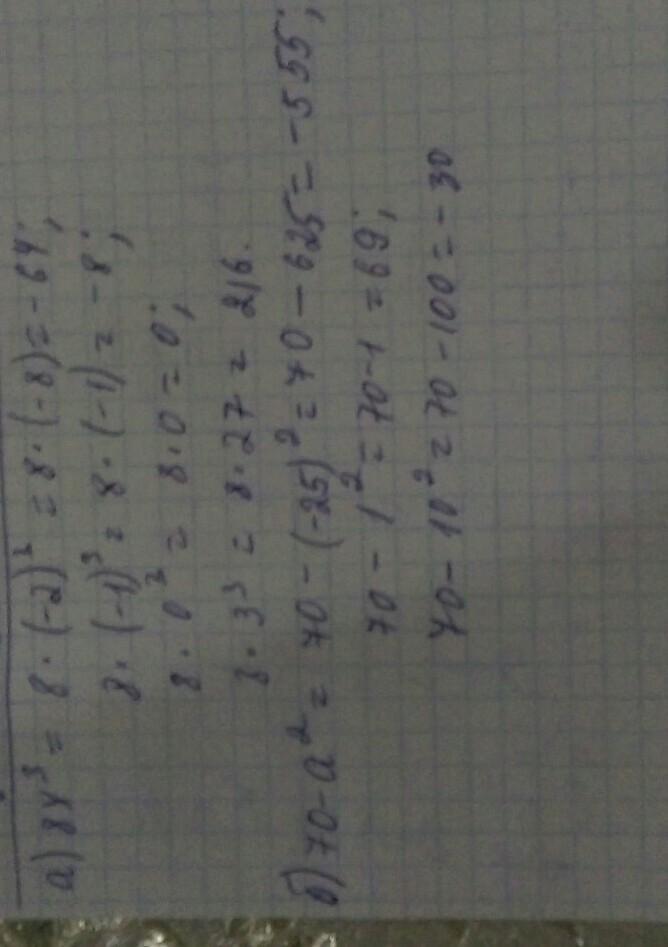 а) 8y³ = 8 · (-2)³ = 8 · (-8) = -64;
8 · (-1)³ = 8 · (-1) = -8;
8 · 0³ = 8 · 0 = 0;
8 · 3³ = 8 · 27 = 216.
б) 70 - a² = 70 - (-25)² = 70 - 625 = -555;
70 - 1² = 70 - 1 = 69;
70 - 10² = 70 - 100 = -30